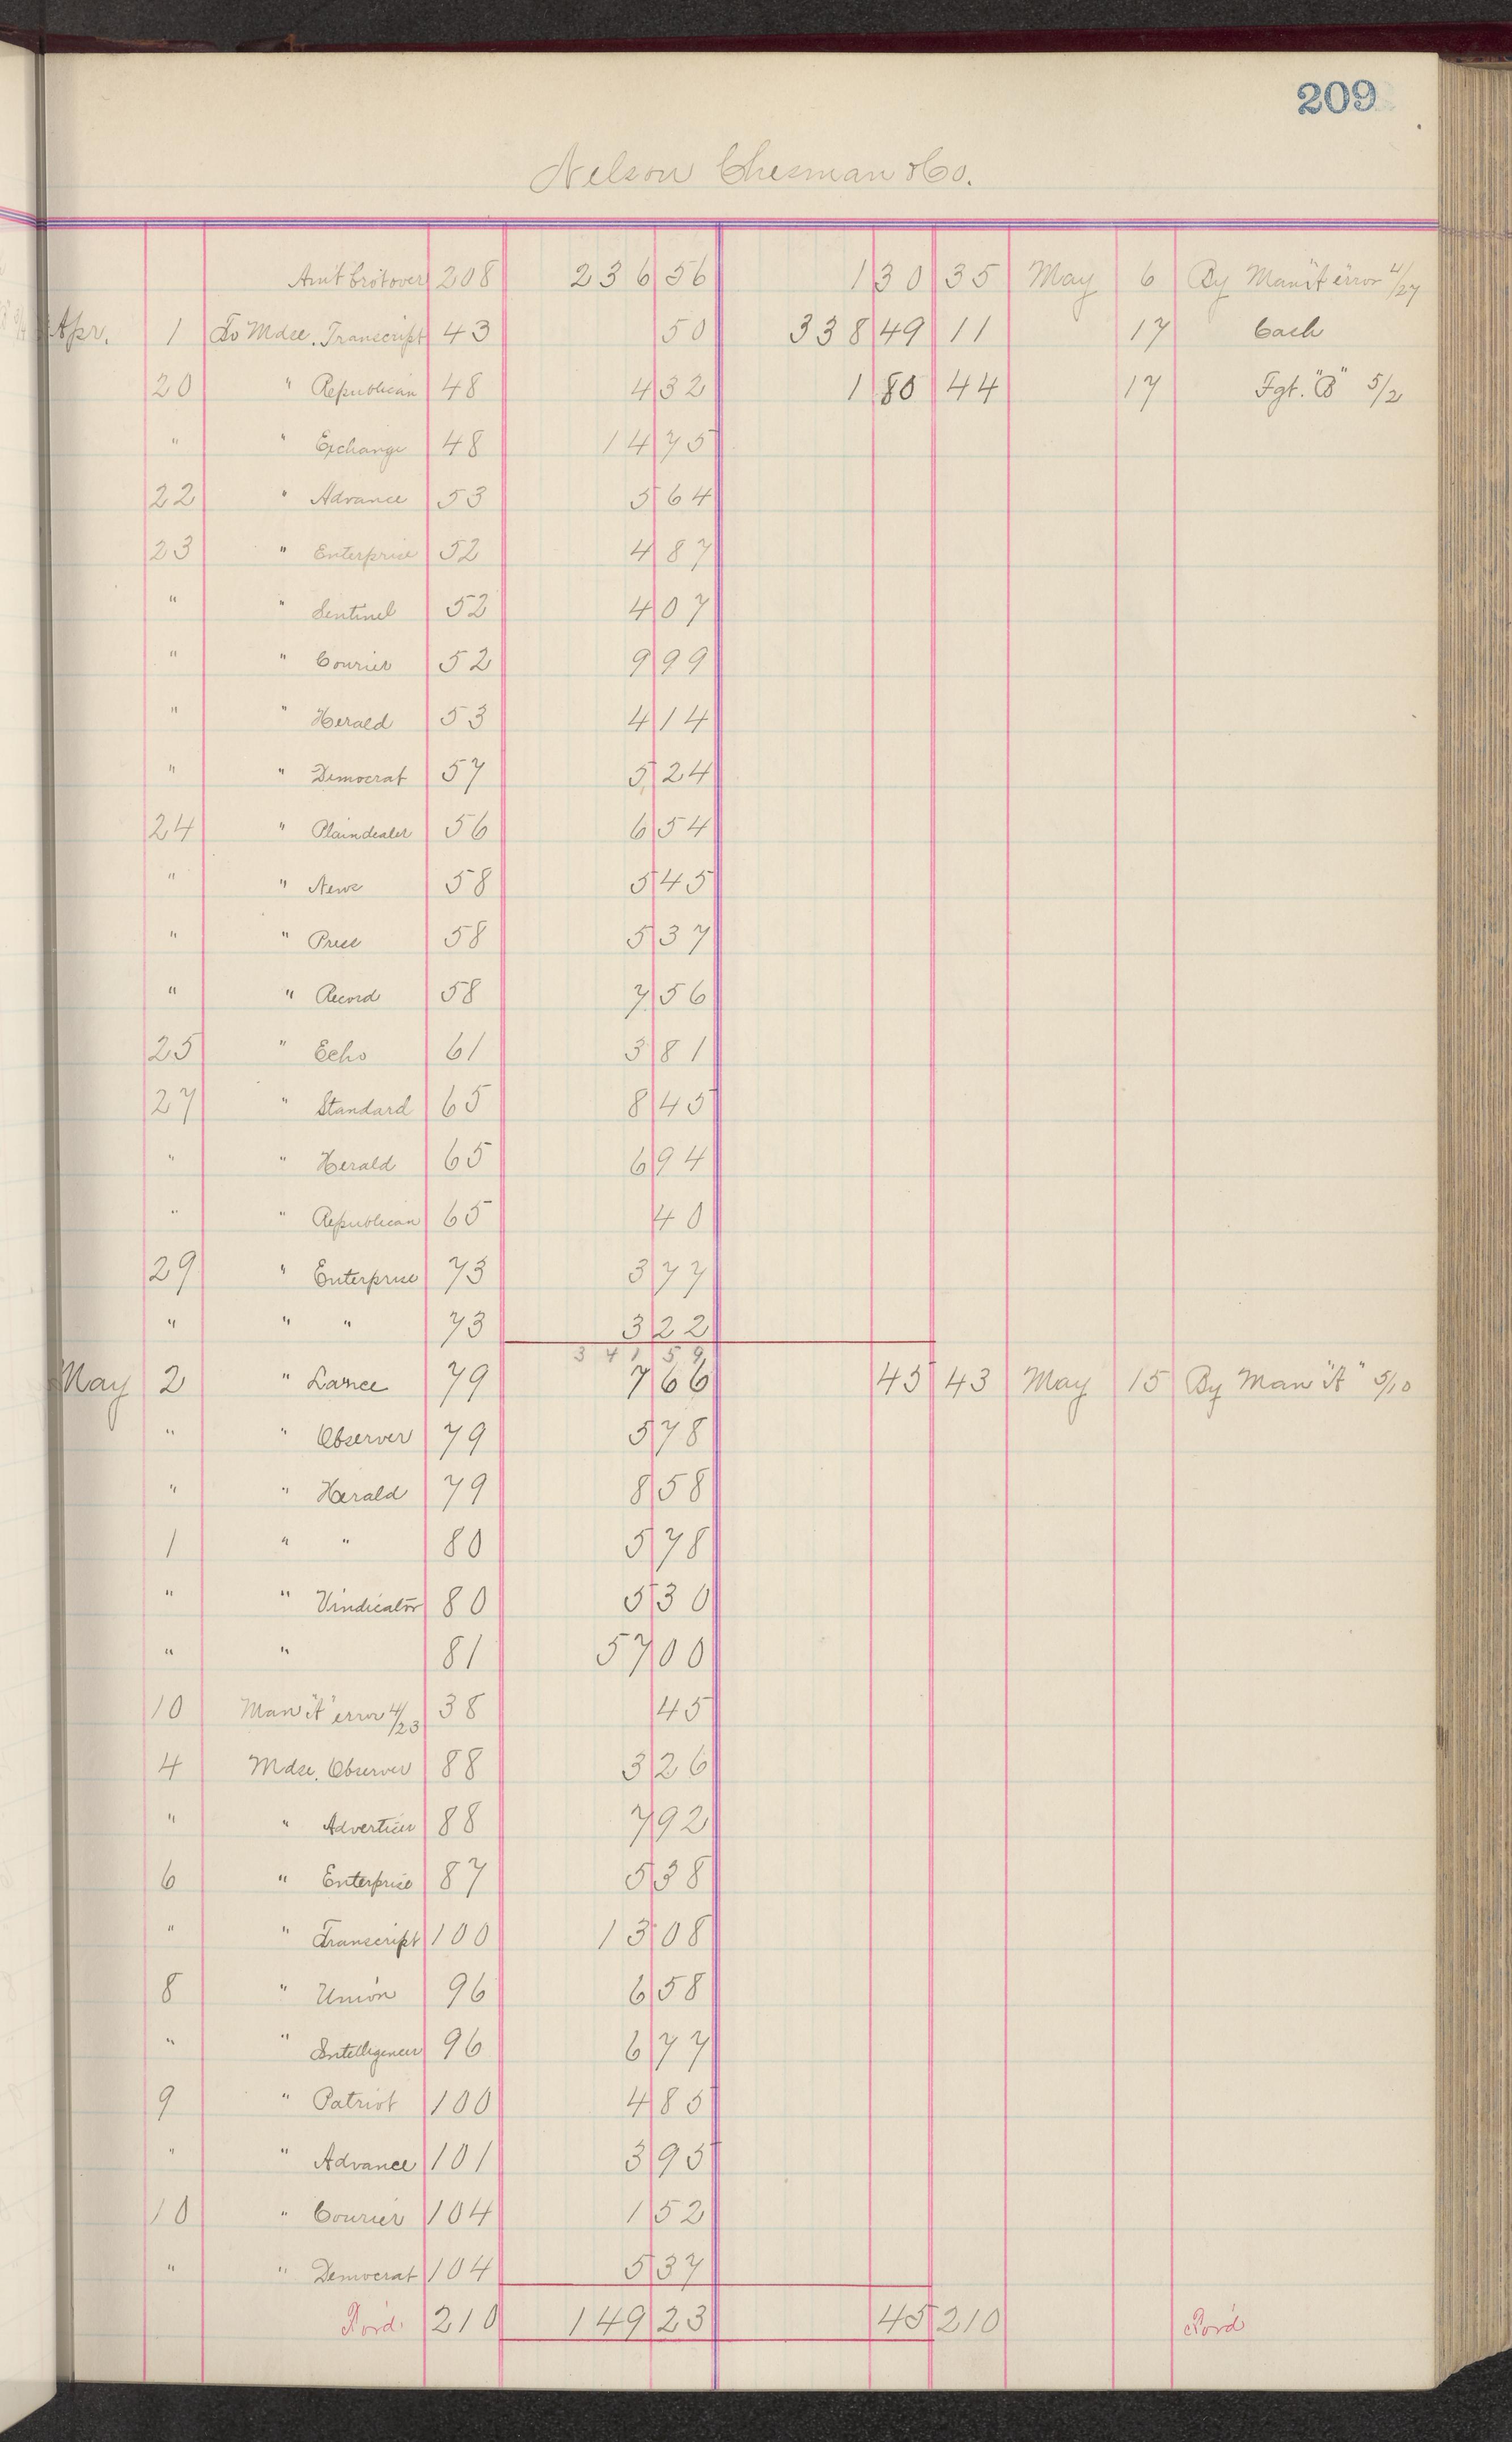 209
Nelson Chesman & Co.
Amt brot over 208 236 56 1 30 35 May 6 By Man "A" error 4/27
Apr. 1 To Mdse. Transcript 43 50 338 49 11 17 Cash
20 " Republican 48 4 32 1 80 44 17 Fgt. "B" 5/2
" " Exchange 48 14 75
22 " Advance 53 5 64
23 " Enterprise 52 4 87
" " Sentinel 52 4 07
" " Courier 52 9 99
" " Herald 53 4 14
" " Democrat 57 5 24
24 " Plaindealer 56 6 54
" " News 58 5 45
" " Press 58 5 37
" " Record 58 7 56
25 " Echo 61 3 81
27 " Standard 65 8 45
" " Herald 65 6 94
" " Republican 65 40
29 " Enterprise 73 3 77
" " " 73 3 22
3 4 1 5 9
May 2 " Lance 79 7 66 45 43 May 15 By Man "A" 5/10
" " Observer 79 5 78
" " Herald 79 8 58
1 " " 80 5 78
" " Vindicator 80 5 30
" " 81 57 00
10 Man "A" error 4/23 38 45
4 Mdse. Observer 88 3 26
" " Advertiser 88 7 92
6 " Enterprise 87 5 38
" " Transcript 100 13 08
8 " Union 96 6 58
" " Intelligencer 96 6 77
9 " Patriot 100 4 85
" " Advance 101 3 95
10 " Courier 104 1 52
" " Democrat 104 5 37
Ford 210 149 23 45 210 Ford